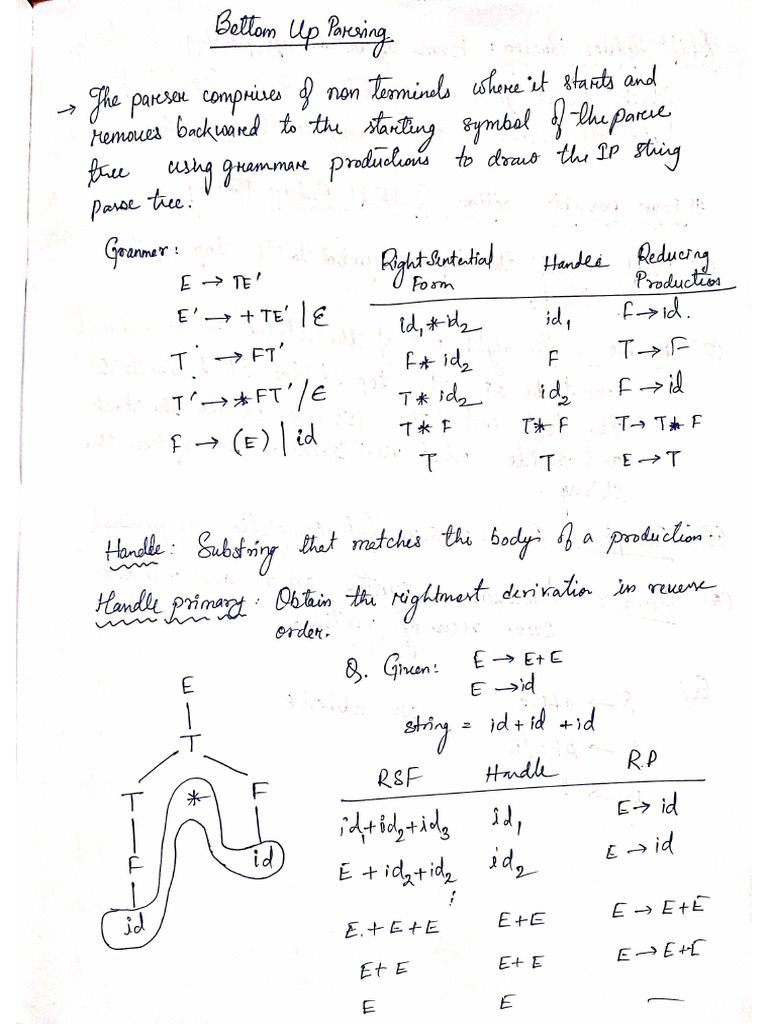 Bottom Up Parsing
→ The parser comprises of non terminals where it starts and
removes backward to the starting symbol of the parse
tree using grammar productions to draw the IP string
parse tree.
Grammer:
E → TE'
E' → +TE' | ε
T → FT'
T' → *FT' / ε
F → (E) | id
Right Sentential Form Handle Reducing Production
id₁*id₂ id₁ F → id.
F* id₂ F T → F
T* id₂ id₂ F → id
T* F T* F T → T* F
T T E → T
Handle: Substring that matches the body of a production.
Handle primary: Obtain the rightmost derivation in reverse
order.
Q. Given: E → E+E
E → id
string = id+id+id
RSF Handle R.P
id₁+id₂+id₃ id₁ E → id
E + id₂+id₂ id₂ E → id
⋮
E.+E+E E+E E → E+E
E+E E+E E → E+E
E E —
E
T
T * F
F id
id